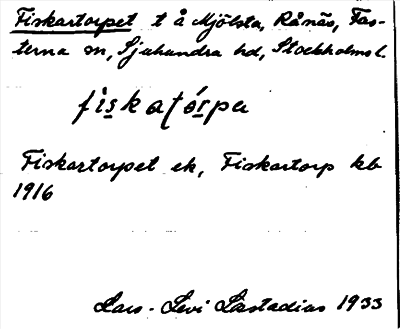 Fiskartorpet t å Mjölsta, Rånäs, Fas-
terna sn, Sjuhundra hd, Stockholms l.
fiskatórpa
Fiskartorpet ek, Fiskartorp kb
1916
Lars-Levi Læstadius 1933